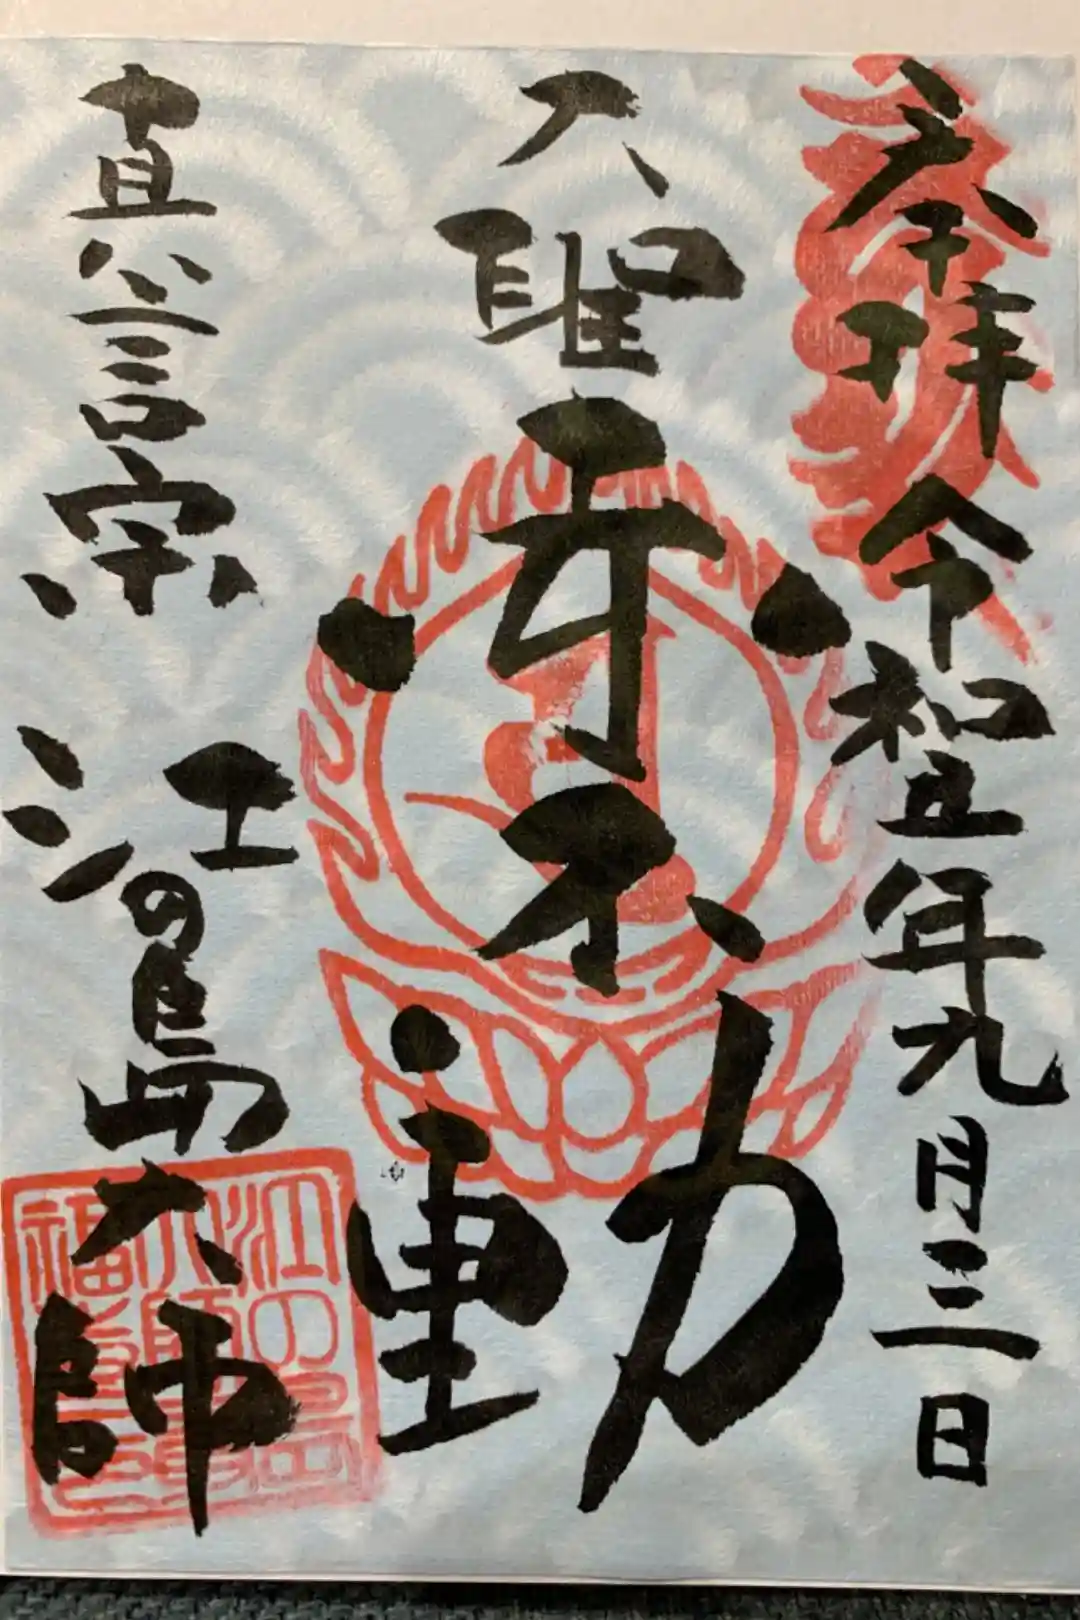 奉拝 令和五年九月三日
大聖不動
真言宗 江の島大師
江の島
大師
福